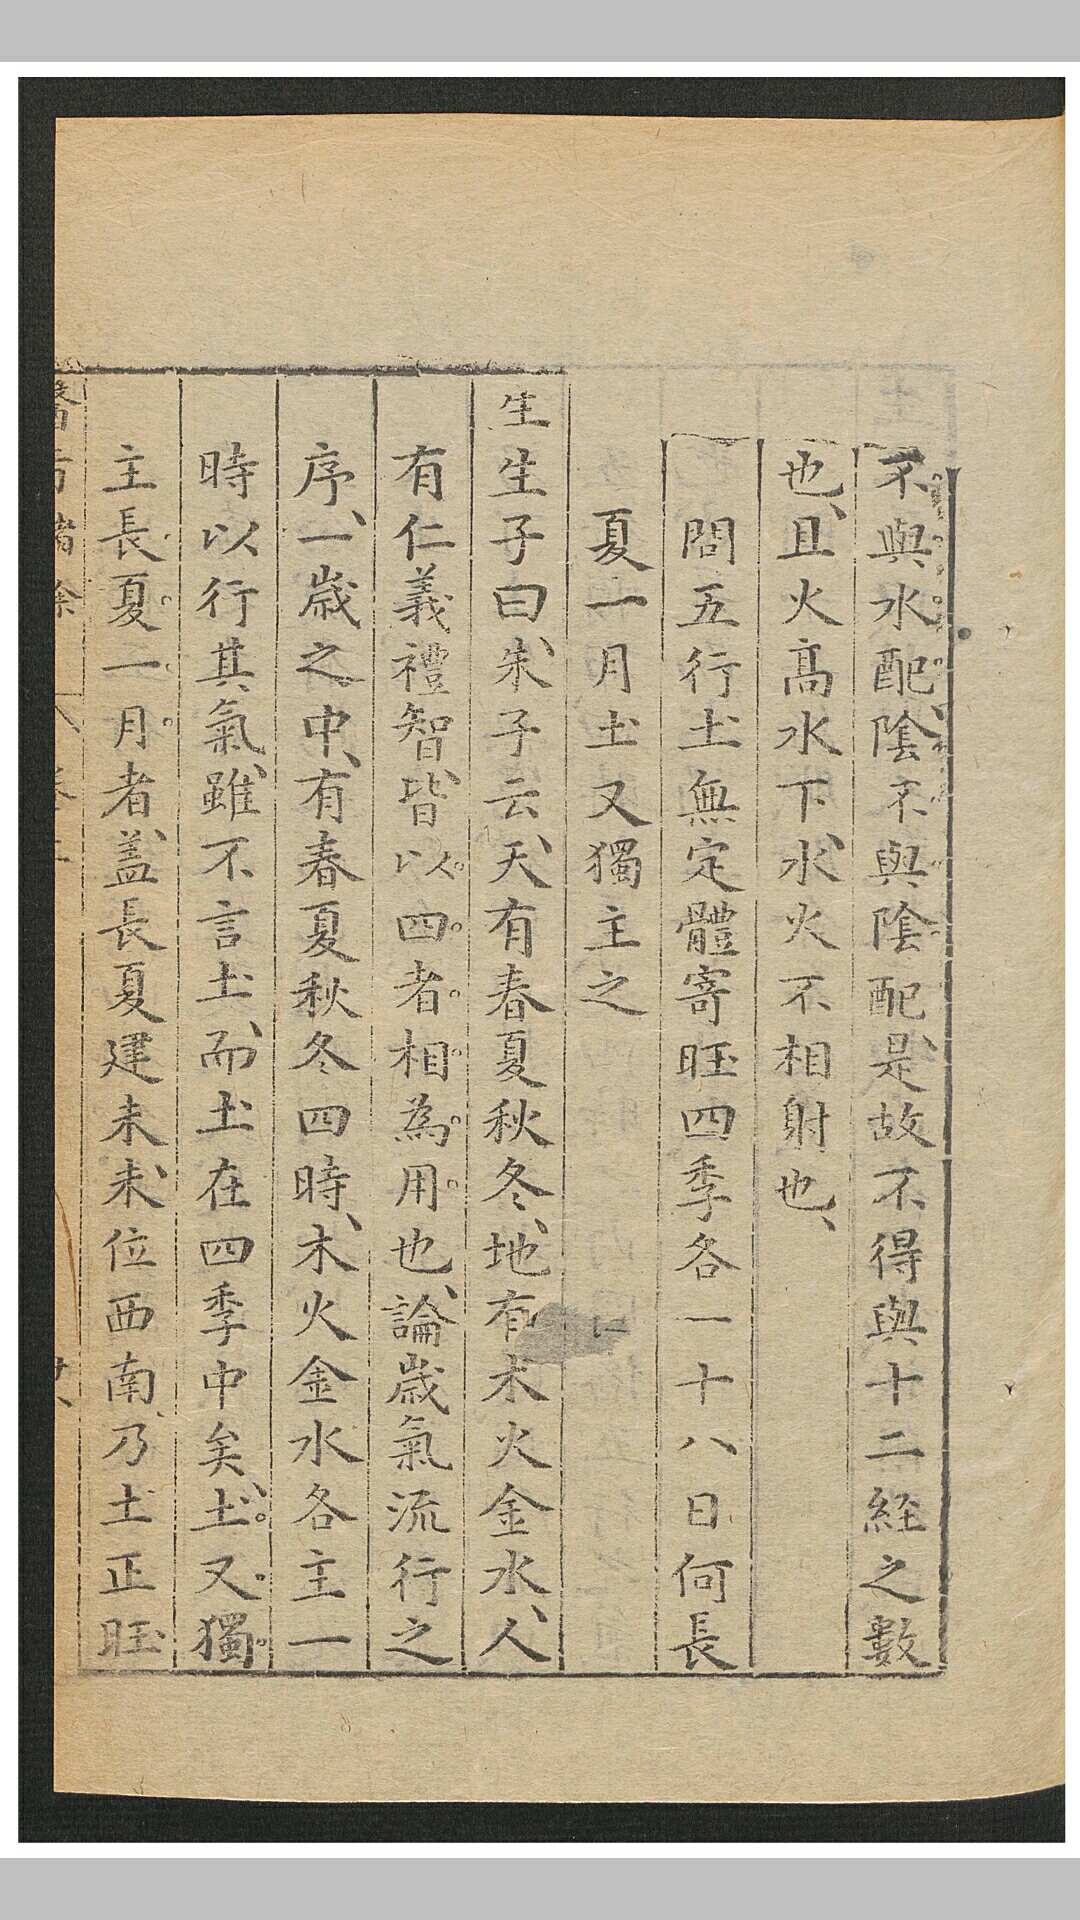 不與水配、陰不與陰配、是故不得與十二經之數
也、且火高水下、水火不相射也、
問五行土無定體寄旺四季各一十八日何長
夏一月土又獨主之
生生子曰、朱子云、天有春夏秋冬、地有木火金水、人
有仁義禮智、皆以四者相為用也、論歲氣流行之
序、一歲之中、有春夏秋冬四時、木火金水各主一
時以行其氣、雖不言土、而土在四季中矣、土又獨
主長夏一月者、蓋長夏建未、未位西南、乃土正旺
醫方緒餘